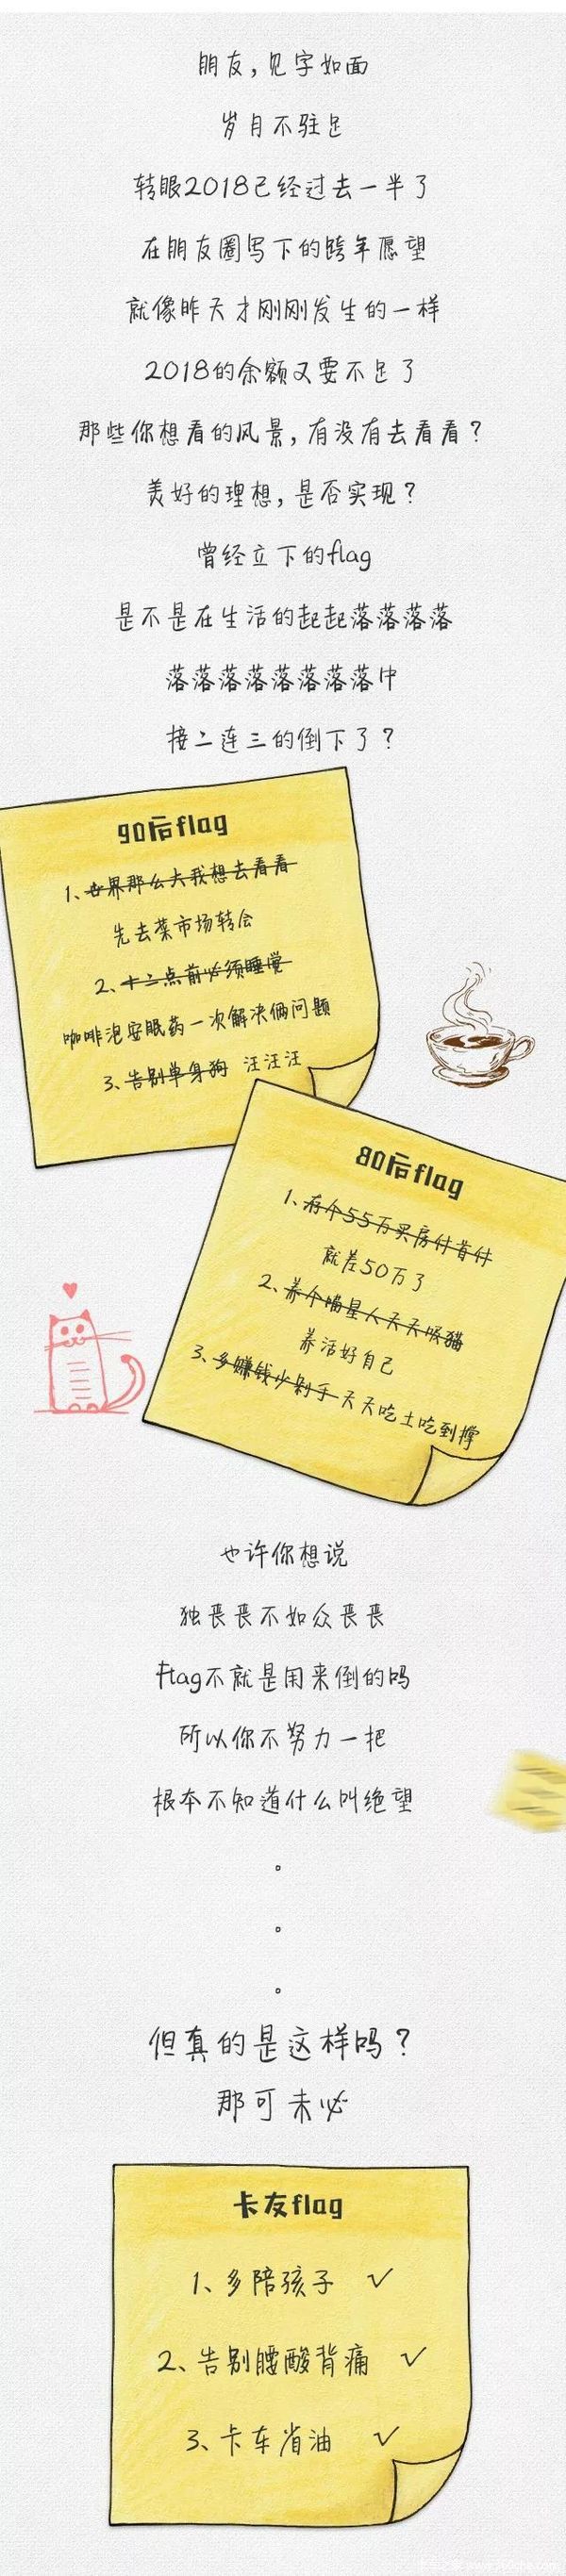 朋友,见字如面
岁月不驻足
转眼2018已经过去一半了
在朋友圈写下的跨年愿望
就像昨天才刚刚发生的一样
2018的余额又要不足了
那些你想看的风景,有没有去看看?
美好的理想,是否实现?
曾经立下的flag
是不是在生活的起起落落落落
落落落落落落落落中
接二连三的倒下了?
90后flag
1、世界那么大我想去看看
先去菜市场转会
2、十二点前必须睡觉
咖啡泡安眠药一次解决俩问题
3、告别单身狗 汪汪汪
80后flag
1、存个55万买房付首付
就差50万了
2、养个喵星人天天吸猫
养活好自己
3、多赚钱少剁手天天吃土吃到撑
也许你想说
独丧丧不如众丧丧
Flag不就是用来倒的吗
所以你不努力一把
根本不知道什么叫绝望
。
。
。
但真的是这样吗?
那可未必
卡友flag
1、多陪孩子 ✓
2、告别腰酸背痛 ✓
3、卡车省油 ✓